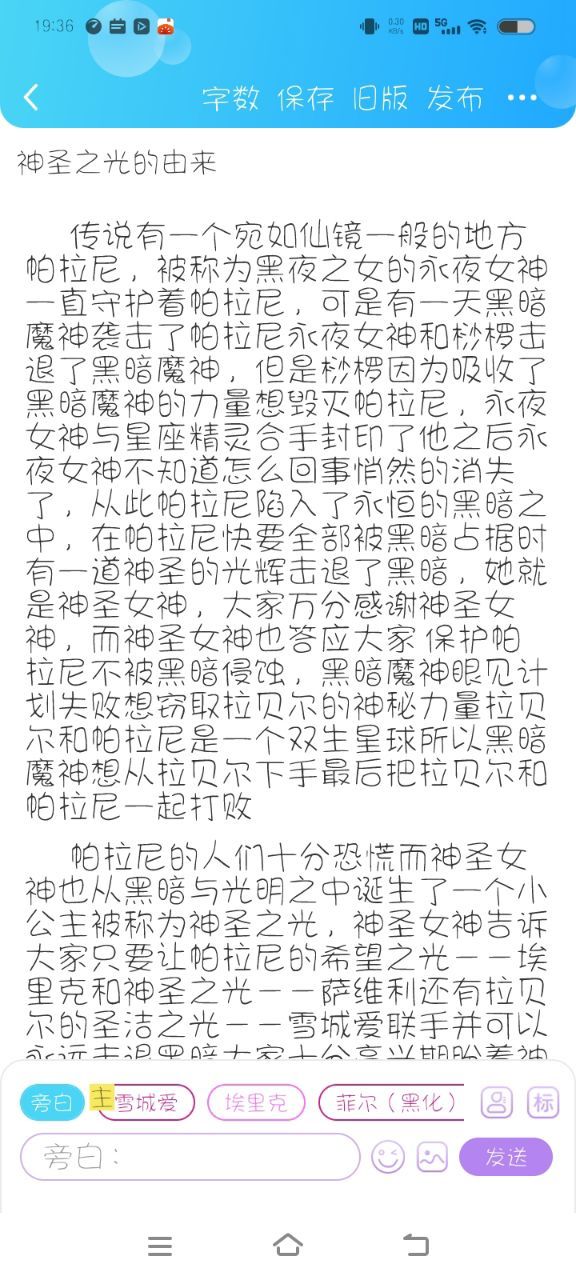 19:36
0.30
KB/s
HD
5G
字数 保存 旧版 发布
神圣之光的由来
传说有一个宛如仙镜一般的地方
帕拉尼，被称为黑夜之女的永夜女神
一直守护着帕拉尼，可是有一天黑暗
魔神袭击了帕拉尼永夜女神和桫椤击
退了黑暗魔神，但是桫椤因为吸收了
黑暗魔神的力量想毁灭帕拉尼，永夜
女神与星座精灵合手封印了他之后永
夜女神不知道怎么回事悄然的消失
了，从此帕拉尼陷入了永恒的黑暗之
中，在帕拉尼快要全部被黑暗占据时
有一道神圣的光辉击退了黑暗，她就
是神圣女神，大家万分感谢神圣女
神，而神圣女神也答应大家 保护帕
拉尼不被黑暗侵蚀，黑暗魔神眼见计
划失败想窃取拉贝尔的神秘力量拉贝
尔和帕拉尼是一个双生星球所以黑暗
魔神想从拉贝尔下手最后把拉贝尔和
帕拉尼一起打败
帕拉尼的人们十分恐慌而神圣女
神也从黑暗与光明之中诞生了一个小
公主被称为神圣之光，神圣女神告诉
大家只要让帕拉尼的希望之光——埃
里克和神圣之光——萨维利还有拉贝
尔的圣洁之光——雪城爱联手并可以
永远击退黑暗大家十分高兴期盼着神
旁白 主 雪城爱 埃里克 菲尔（黑化） 标
旁白： 发送